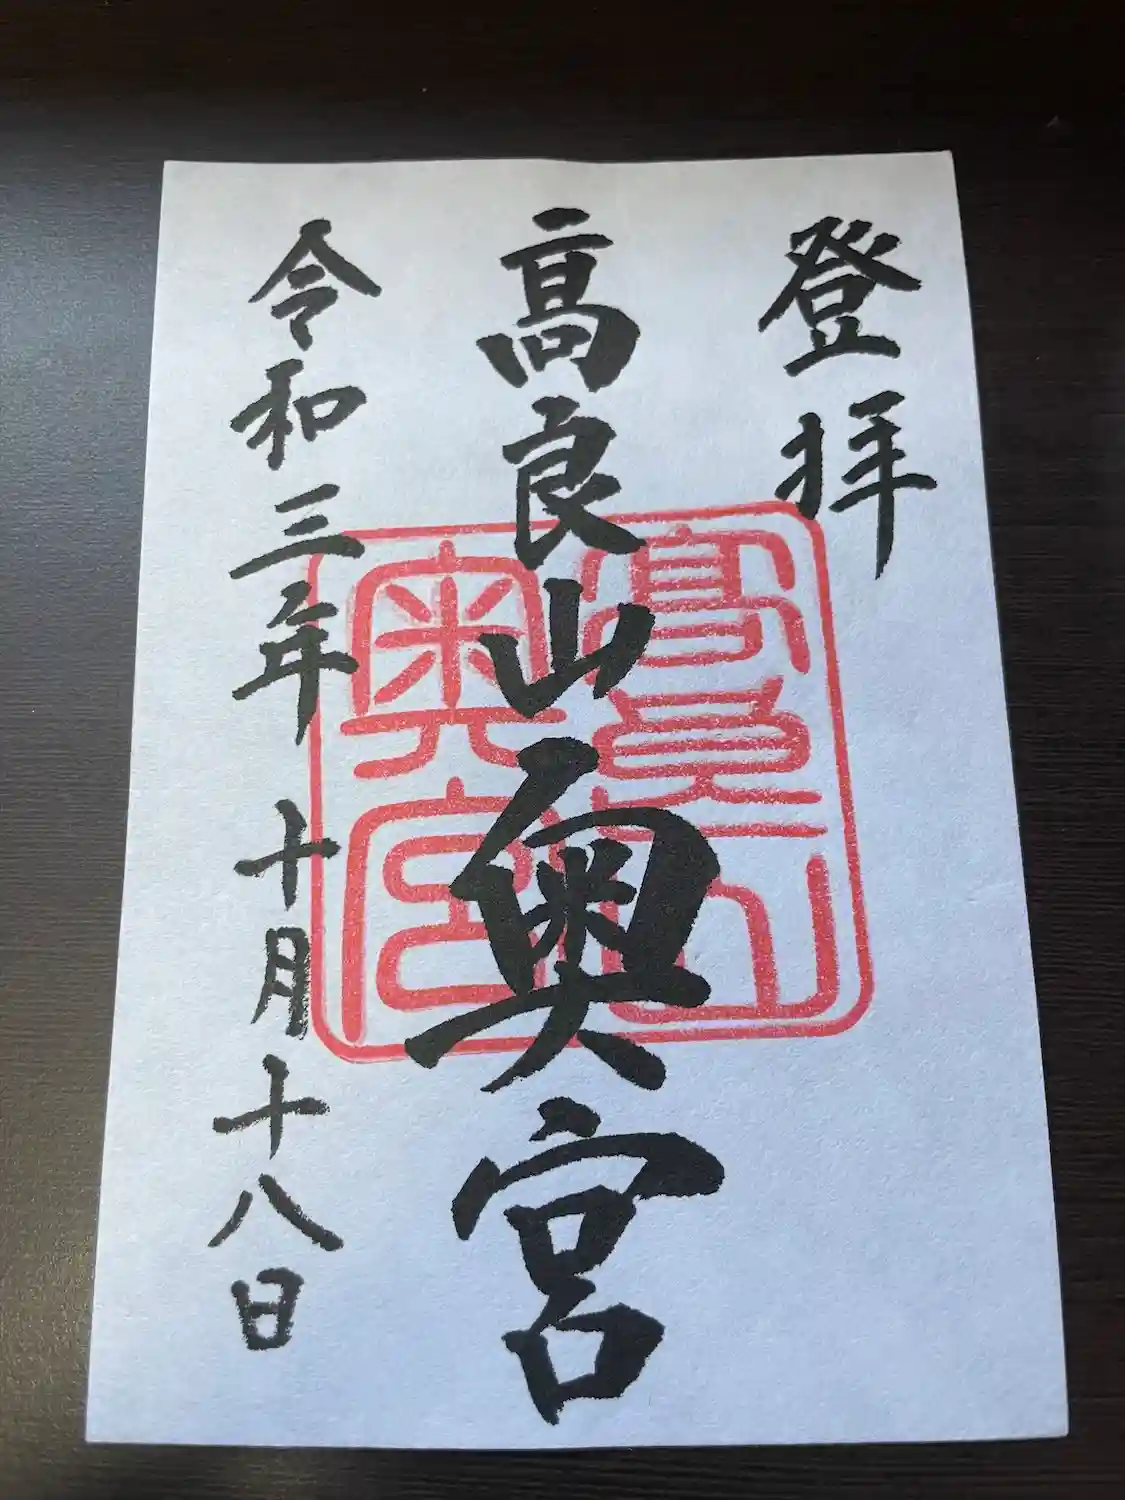 登拝
高良山奥宮
令和三年 十月十八日
高良山
奥宮